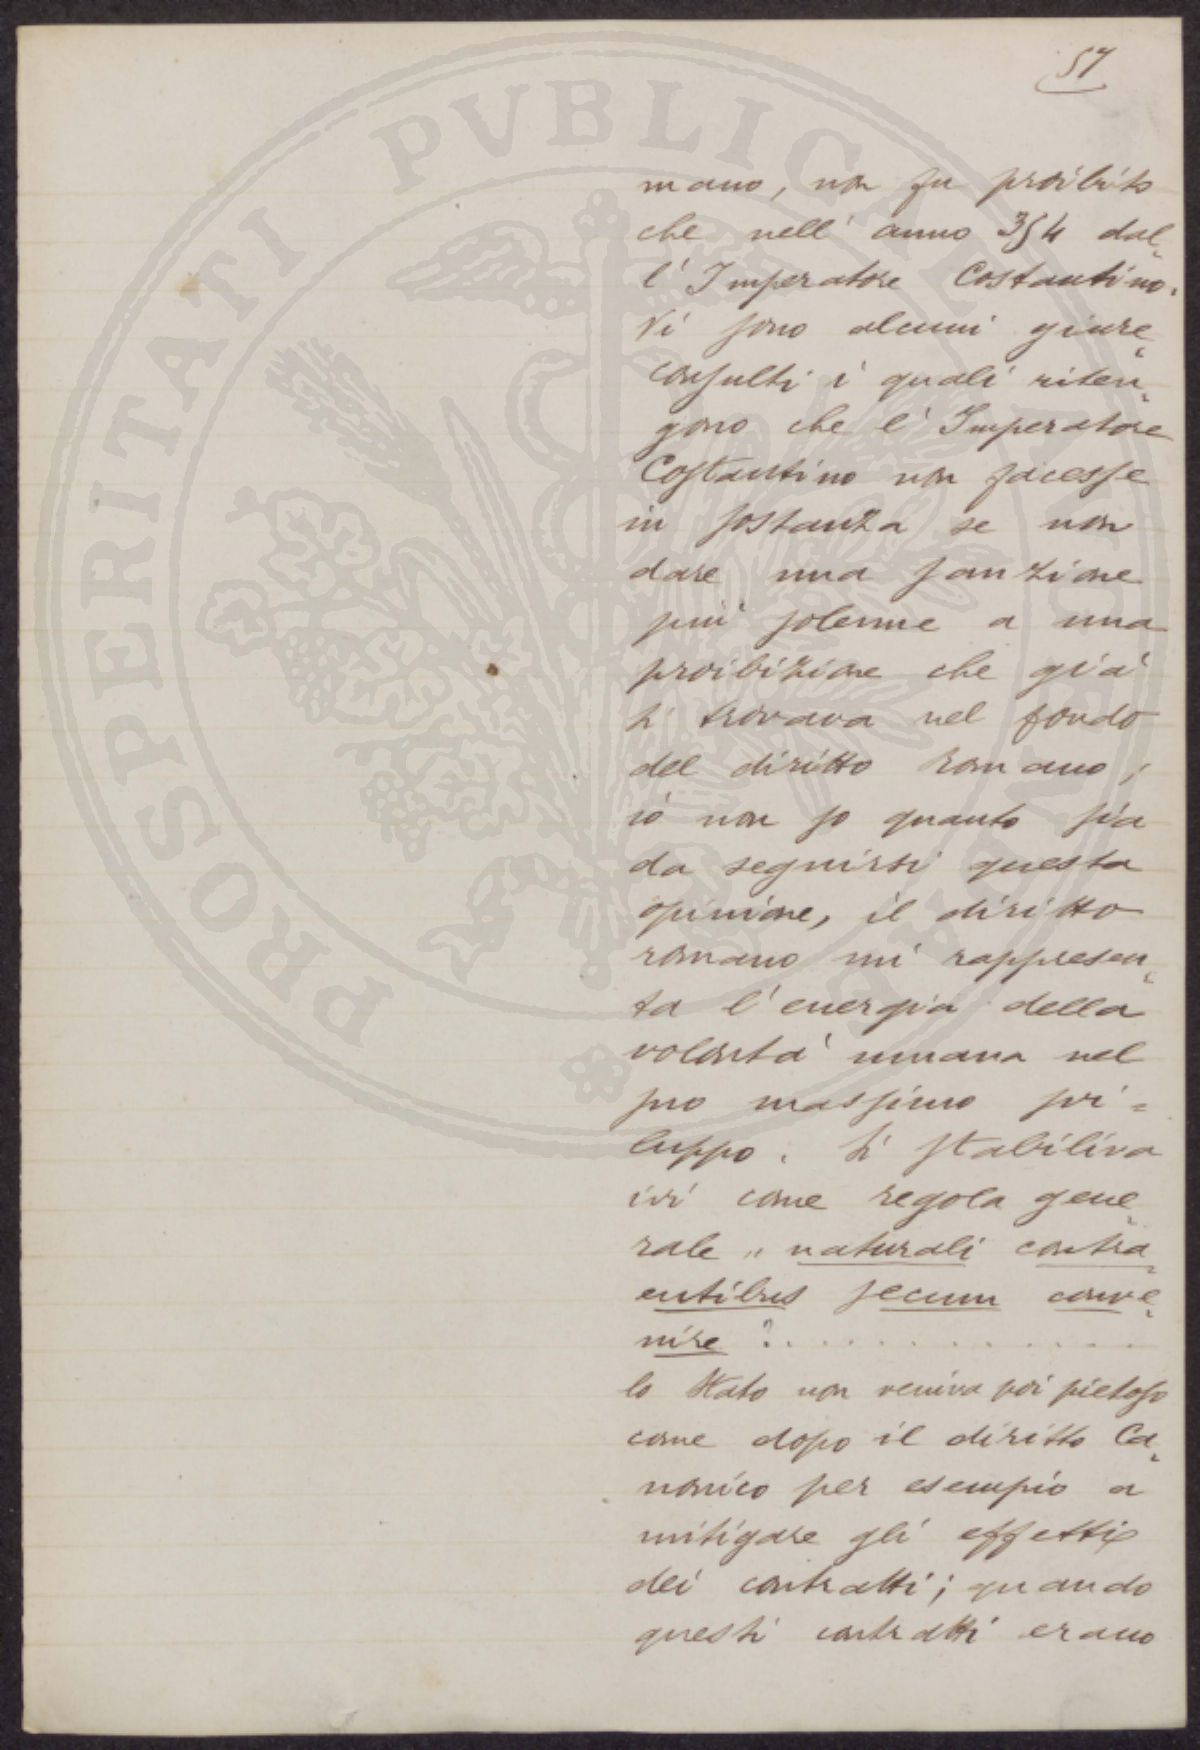 57
mano, non fu proibito
che nell' anno 354 dal-
l' Imperatore Costantino.
Vi sono alcuni giure-
consulti i quali riten-
gono che l' Imperatore
Costantino non facesse
in sostanza se non
dare una sanzione
più solenne a una
proibizione che già
si trovava nel fondo
del diritto romano;
io non so quanto sia
da seguirsi questa
opinione, il diritto
romano mi rappresen-
ta l' energia della
volontà umana nel
suo massimo svi=
luppo. Si stabiliva
ivi come regola gene-
rale „ naturali contra-
entibus secum conve-
nire ? . . . . . . . . . . . .
lo Stato non veniva poi pietoso
come dopo il diritto Ca-
nonico per esempio a
mitigare gli effetti
dei contratti; quando
questi contratti erano
PROSPERITATI PVBLICAE